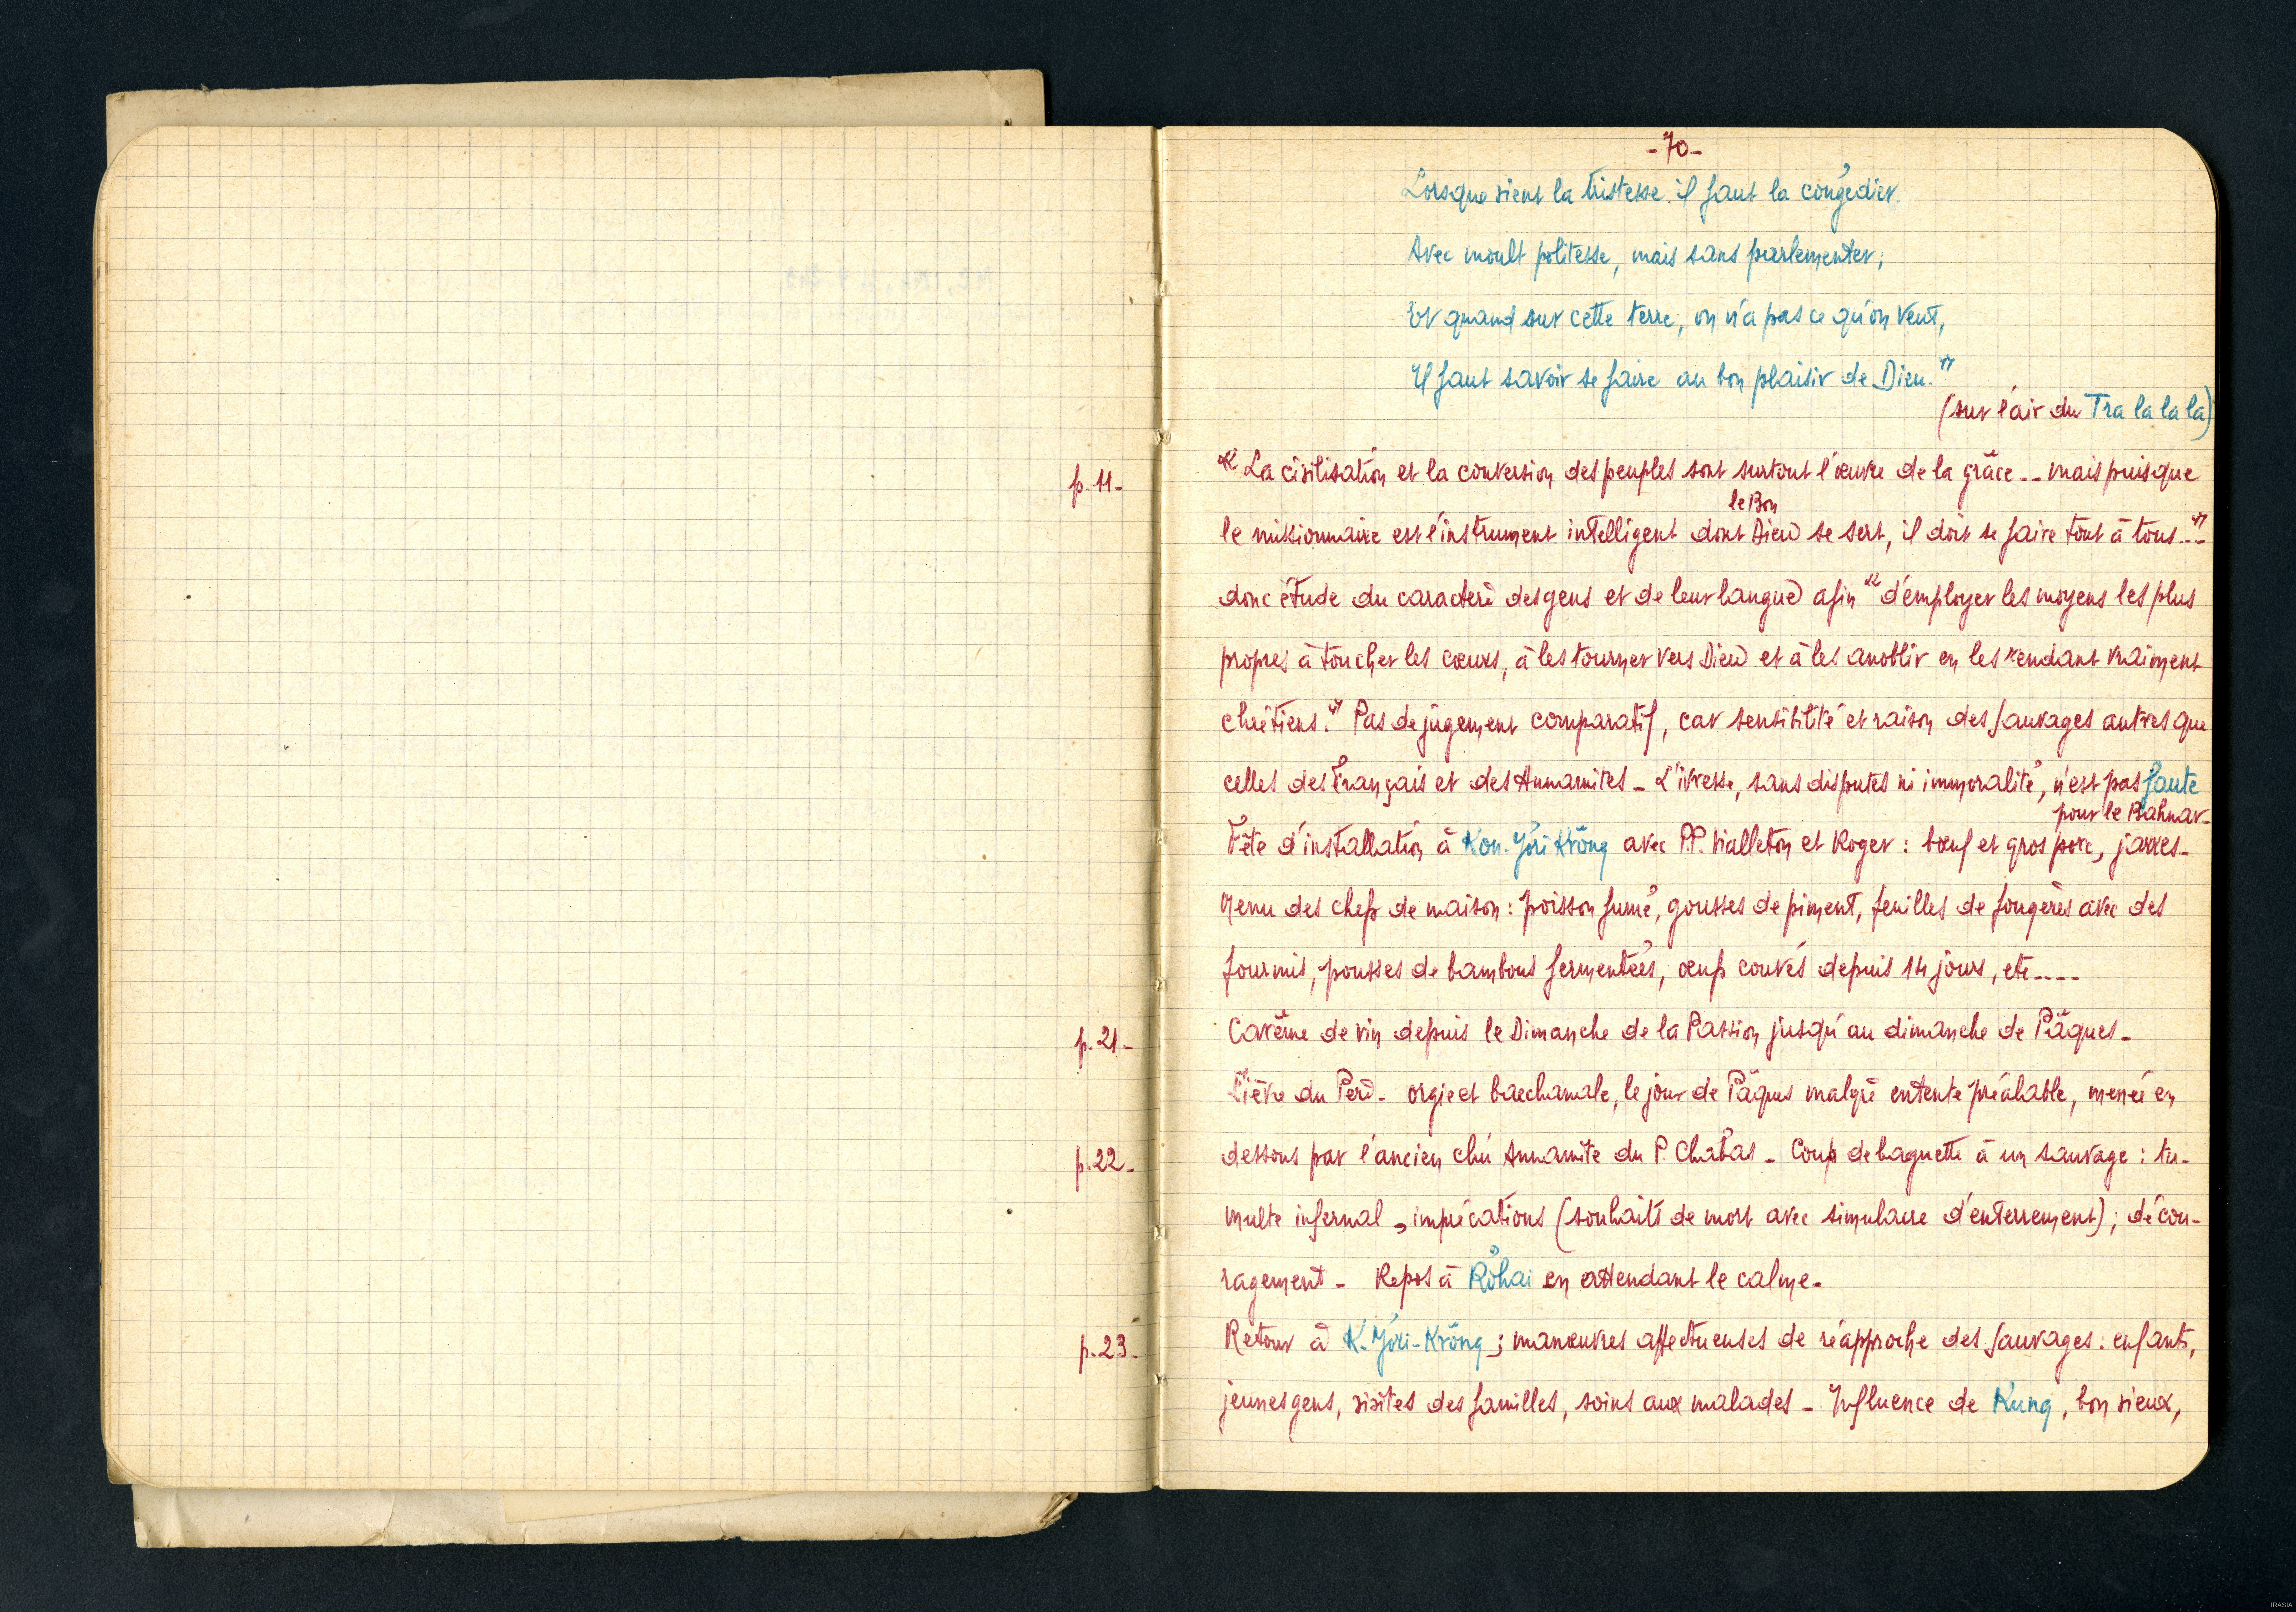 - 70 -
Lorsque vient la tristesse. il faut la congédier.
Avec moult politesse, mais sans parlementer;
Et quand sur cette terre, on n'a pas ce qu'on veut,
Il faut savoir se faire au bon plaisir de Dieu."
(sur l'air du Tra la la la)
p. 11 -
" La civilisation et la conversion des peuples sont surtout l'œuvre de la grâce... mais puisque
le Bon
le missionnaire est l'instrument intelligent dont Dieu se sert, il doit se faire tout à tous..."
donc étude du caractère des gens et de leur langue afin " d'employer les moyens les plus
propres à toucher les cœurs, à les tourner vers Dieu et à les anoblir en les rendant vraiment
chrétiens." Pas de jugement comparatif, car sensibilité et raison des Sauvages autres que
celles des Français et des Annamites - L'ivresse, sans disputes ni immoralité, n'est pas faute
pour le Bahnar -
Fête d'installation à Kon-Jơri Krŏng avec P.P. Vialleton et Roger : bœuf et gros porc, jarres -
Menu des chefs de maison : poisson fumé, gousses de piment, feuilles de fougères avec des
fourmis, pousses de bambous fermentées, œufs couvés depuis 14 jours, etc....
p. 21 -
Carême de vin depuis le Dimanche de la Passion jusqu'au dimanche de Pâques -
Fièvre du Père - orgie et bacchanale, le jour de Pâques malgré entente préalable, menée en
p. 22 -
dessous par l'ancien chú Annamite du P. Chabas - Coup de baguette à un sauvage : tu-
multe infernal, imprécations (souhaits de mort avec simulacre d'enterrement) ; décou-
ragement - Repos à Rơhai en attendant le calme -
p. 23 -
Retour à K. Jơri-Krŏng ; manœuvres affectueuses de réapproche des Sauvages : enfants,
jeunes gens, visites des familles, soins aux malades - Influence de Kung, bon vieux,
IRASIA